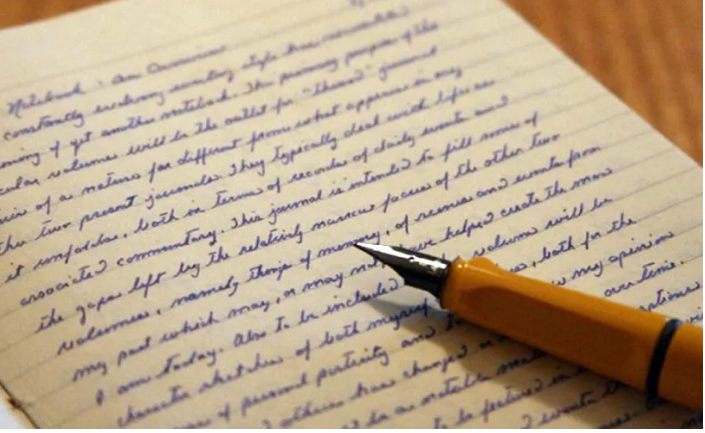 Notebook : An Overview
constantly evolving writing style has necessitated
ning of yet another notebook. The primary purpose of this
cular volume will be the outlet for "themed" journal
of a nature far different from what appears in my
other two present journals. They typically deal with life as
it unfolds, both in terms of records of daily events and
associated commentary. This journal is intended to fill some of
the gaps left by the relatively narrow focus of the other two
volumes, namely things of memory, of scenes and events from
my past which may, or may not, have helped create the man
I am today. Also to be included volume will be
character sketches of both myself, both for the
of personal posterity and my opinion
others has changed over time.
be a notable
to be featured in